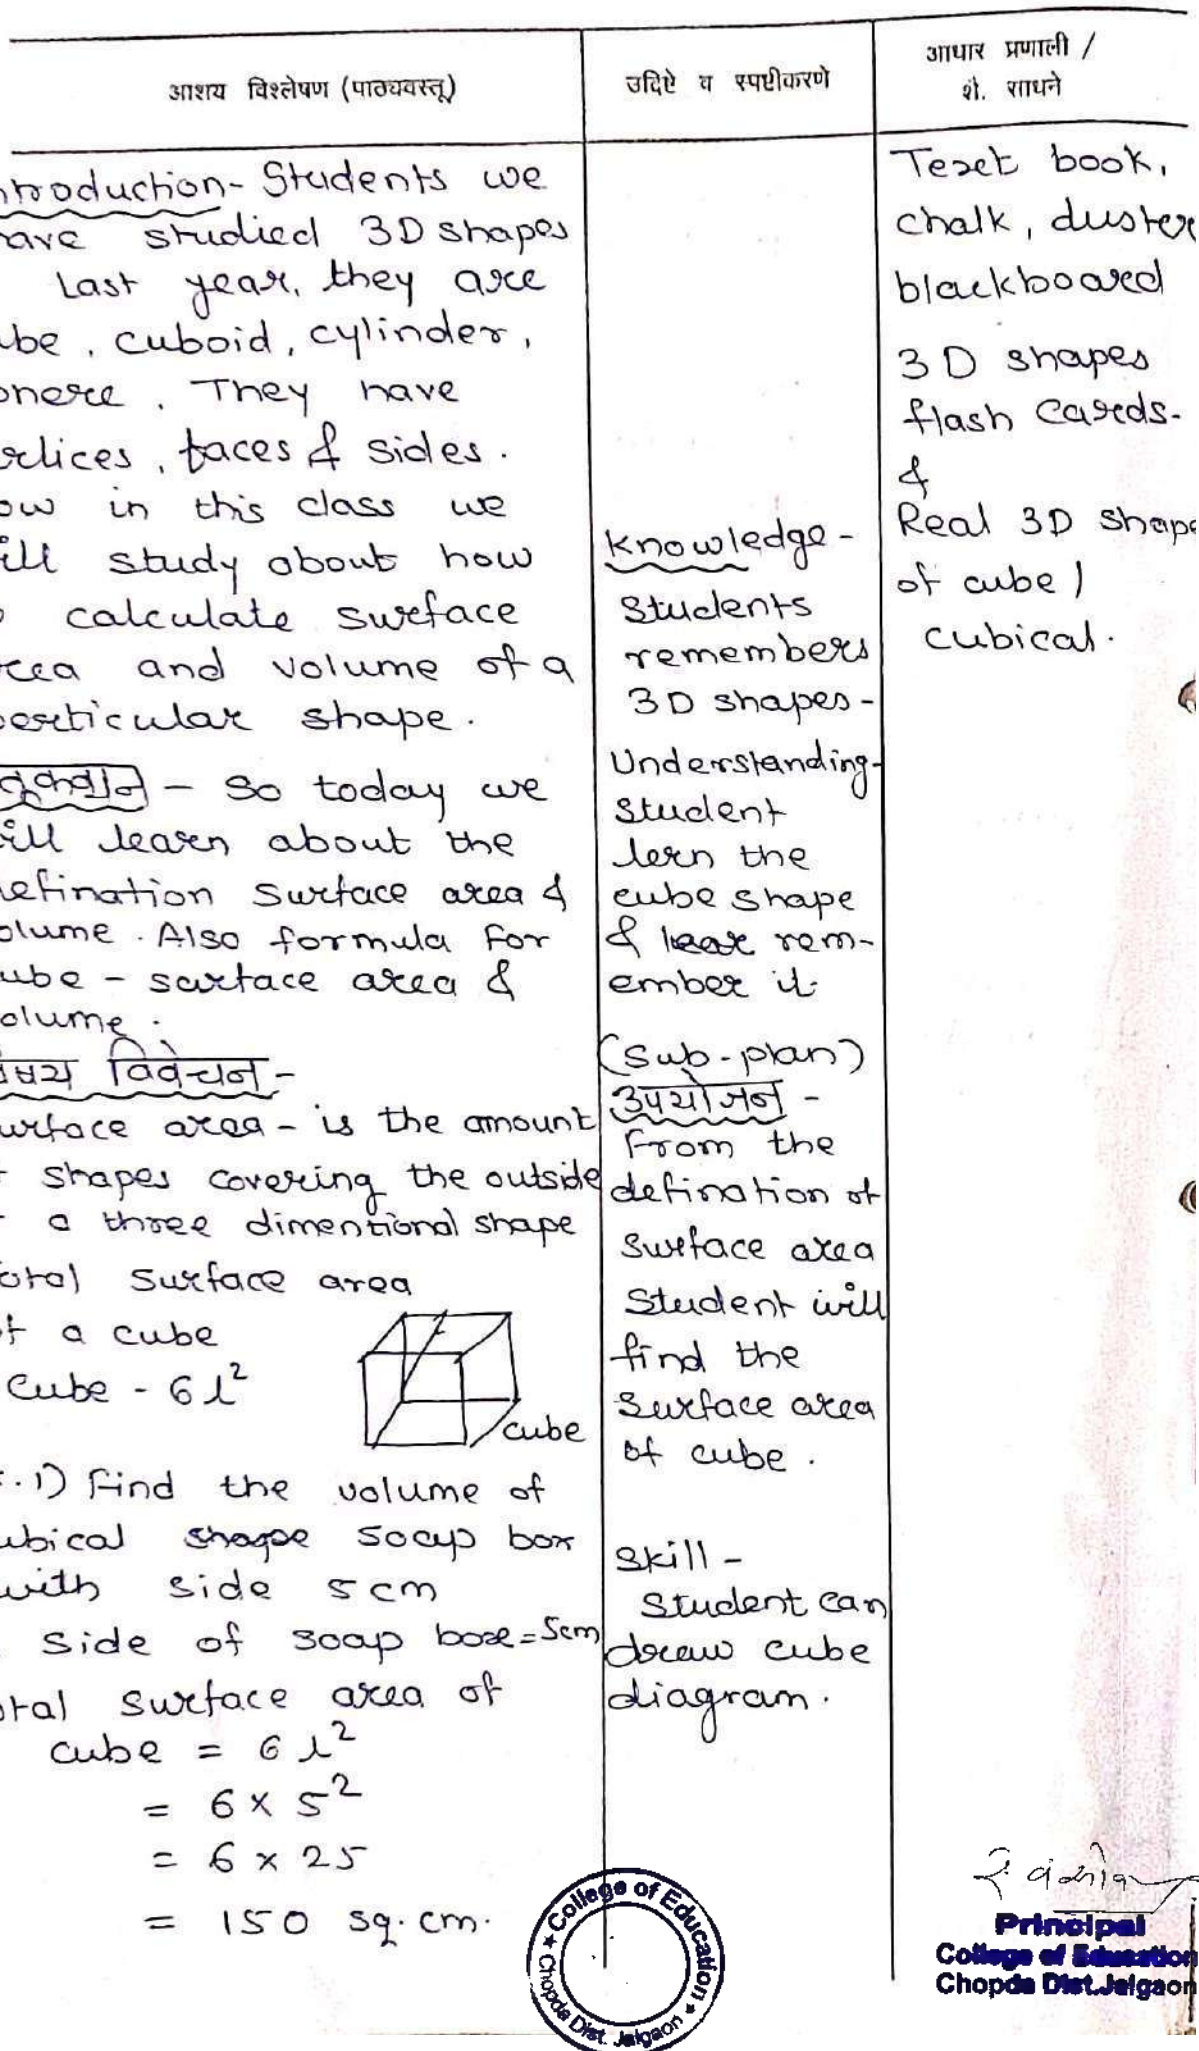 आशय विश्लेषण (पाठ्यवस्तू)
उदिष्टे व स्पष्टीकरणे
आधार प्रणाली /
शै. साधने
ntroduction- Students we
ave studied 3D shapes
Last year, they are
be, cuboid, cylinder,
They have
rlices, faces & sides.
ow in this class we
ill study about how
calculate surface
rea and volume of a
perticular shape.
- So today we
ill learn about the
efination surface area &
olume. Also formula for
ube - surface area &
olume.
षय विवेचन -
urface area - is the amount
shapes covering the outside
a three dimentional shape
otal surface area
f a cube
cube - 6l²
cube
1) Find the volume of
ubical shape soap box
with side 5cm
side of soap box = 5cm
otal surface area of
cube = 6l²
= 6 x 5²
= 6 x 25
= 150 sq.cm.
Knowledge -
Students
remembers
3D shapes -
Understanding-
Student
lern the
cube shape
& rem-
ember it
(Sub-plan)
उपयोजन -
From the
defination of
surface area
Student will
find the
surface area
of cube.
Skill -
Student can
draw cube
diagram.
Text book,
chalk, duster
blackboard
3D shapes
flash cards.
&
Real 3D shape
of cube /
cubical.
College of Education
Chopda Dist. Jalgaon
Principal
College of Education
Chopda Dist.Jalgaon